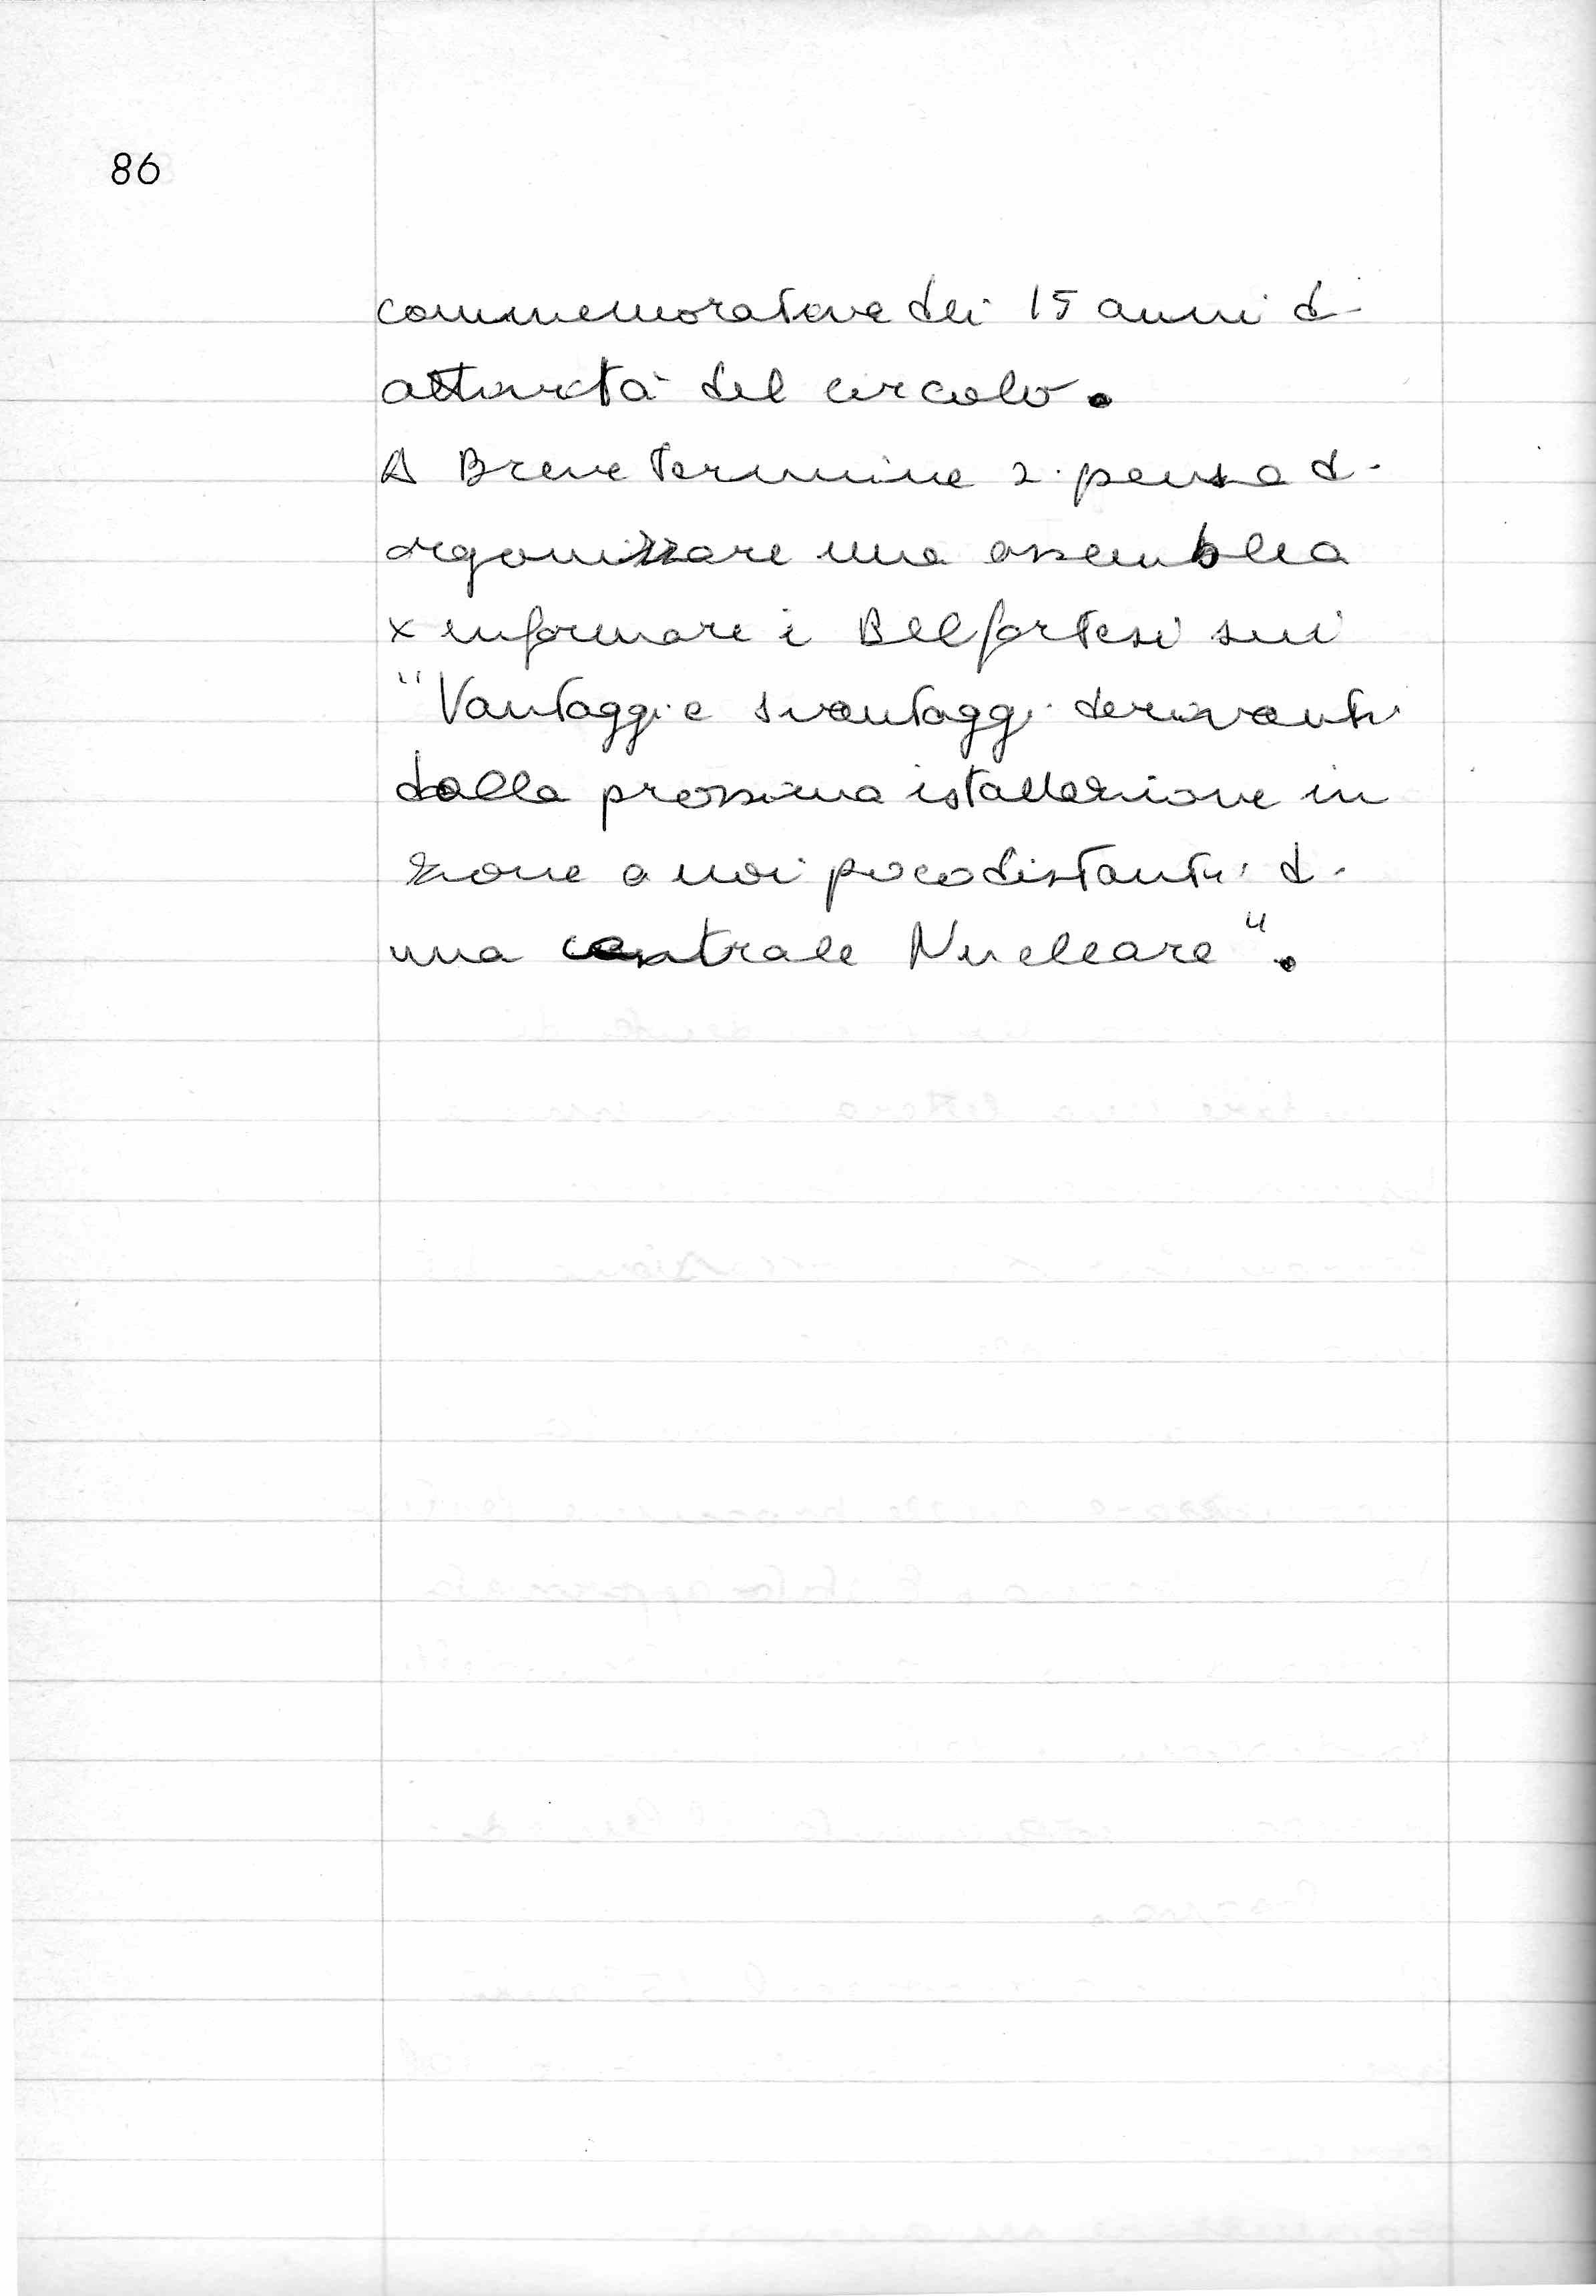 86
commemorativa dei 15 anni di
attività del circolo.
A Breve termine si pensa di
organizzare una assemblea
x informare i Belfortesi sui
"Vantaggi e svantaggi derivanti
dalla prossima istallazione in
zone a noi poco distanti di
una centrale Nucleare".